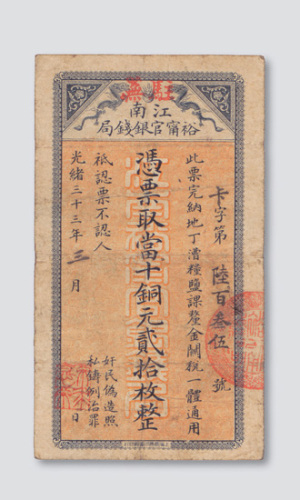 江南
裕甯官銀錢局
卡字第陸百叁伍號
此票完納地丁漕糧鹽課釐金關稅一體通用
憑票取當十銅元貳拾枚整
祗認票不認人
光緒三十三年三月 日
奸民偽造照
私鑄例治罪